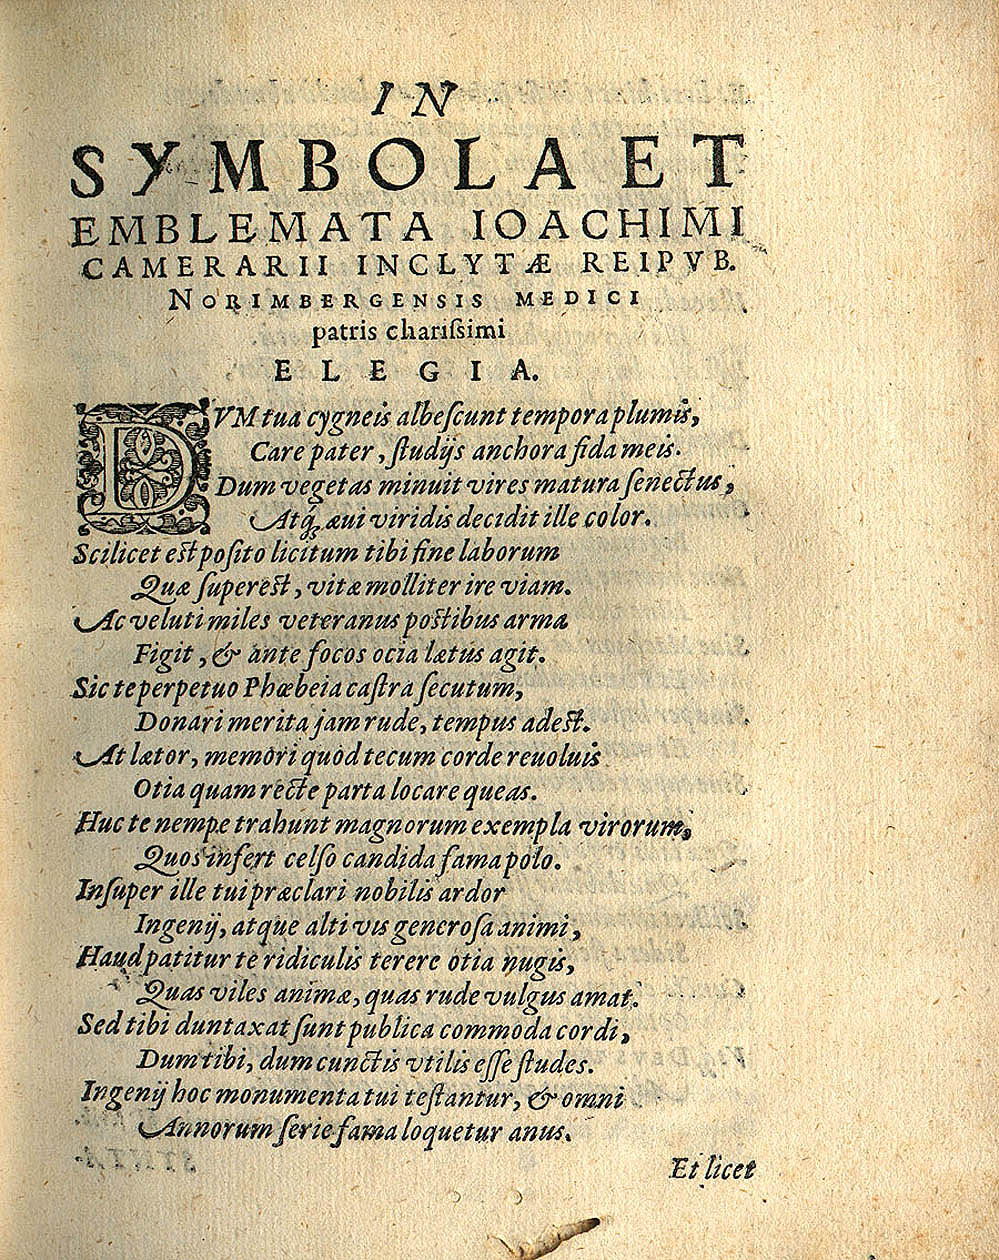 IN
SYMBOLA ET
EMBLEMATA IOACHIMI
CAMERARII INCLYTÆ REIPVB.
NORIMBERGENSIS MEDICI
patris charißimi
ELEGIA.
DVM tua cygneis albeſcunt tempora plumis,
Care pater, ſtudijs anchora fida meis.
Dum vegetas minuit vires matura ſenectus,
Atq; æui viridis decidit ille color.
Scilicet est poſito licitum tibi fine laborum
Quæ ſuperest, vitæ molliter ire viam.
Ac veluti miles veteranus postibus arma
Figit, & ante focos ocia lætus agit.
Sic te perpetuo Phœbeia caſtra ſecutum,
Donari merita jam rude, tempus adest.
At lætor, memori quòd tecum corde reuoluis
Otia quam recte parta locare queas.
Huc te nempe trahunt magnorum exempla virorum,
Quos infert celſo candida fama polo.
Inſuper ille tui præclari nobilis ardor
Ingenij, atque alti vis generoſa animi,
Haud patitur te ridiculis terere otia nugis,
Quas viles animæ, quas rude vulgus amat.
Sed tibi duntaxat ſunt publica commoda cordi,
Dum tibi, dum cunctis vtilis eſſe ſtudes.
Ingenij hoc monumenta tui teſtantur, & omni
Annorum ſerie fama loquetur anus.
Et licet